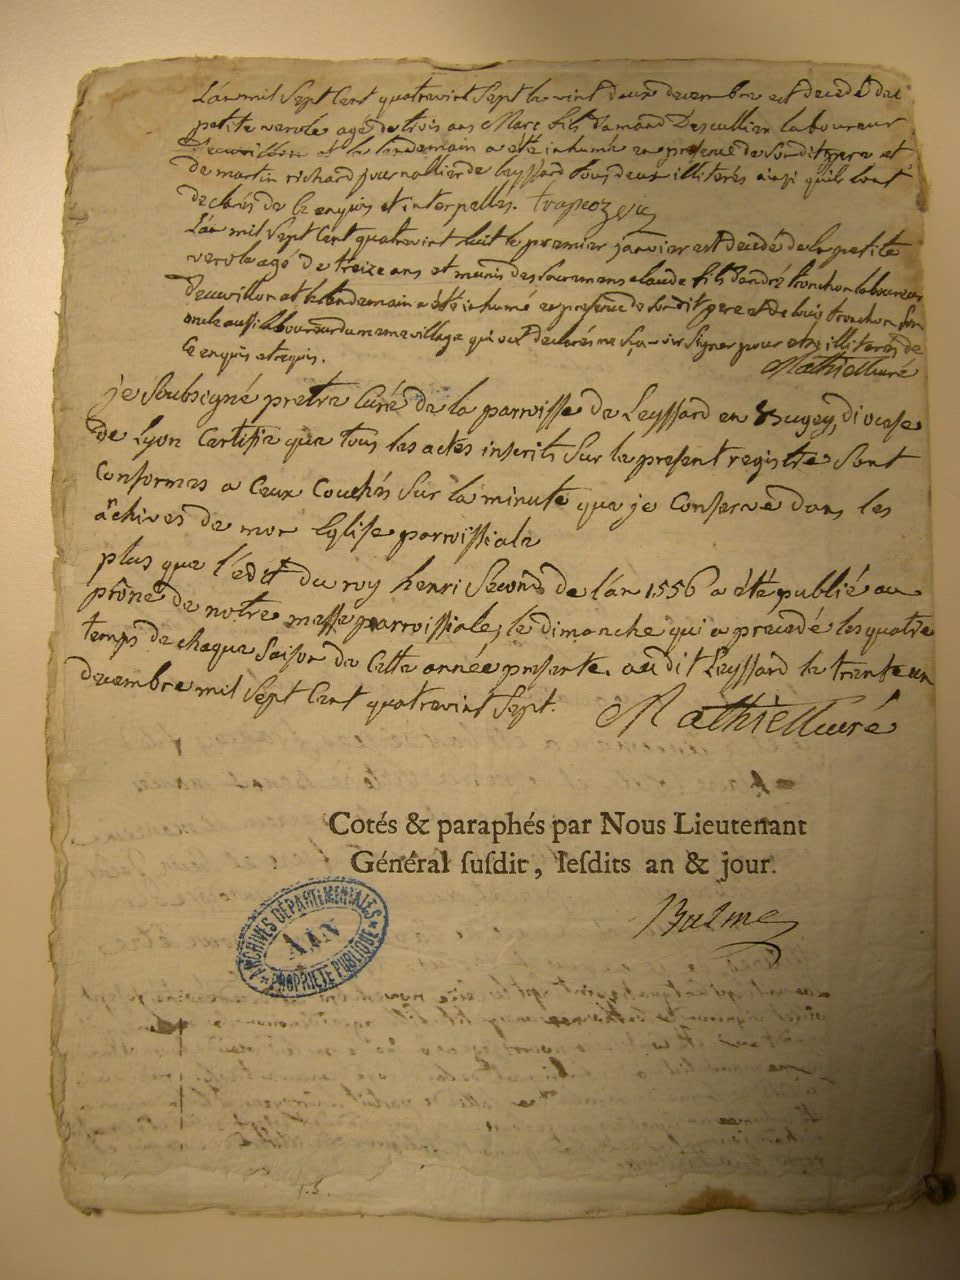 L'an mil Sept Cent quatrevint Sept le vint deux decembre est decedé de la
petite verole agé de trois ans Marc fils damand Descullier laboureur
Decuvillon et le lendemain a été inhumé en presence de Sondit pere et
de martin richard journallier de leyssard tous deux illiterés ainsi quils lont
declarés de ce enquis et interpellés.
L'an mil Sept Cent quatrevint huit le premier janvier est decedé de la petite
verole agé de treize ans et munis des Sacremens claude fils dandré tronchon laboureur
Decuvillon et le lendemain a été inhumé en presence de Son dit pere et de louis tronchon Son
oncle aussi laboureur du meme village qui ont declarés ne Sçavoir Signer pour etre illiterés de
Ce enquis et requis. Mathieu curé
je Soubsigné pretre Curé de la parroisse de Leyssard en Bugey, diocese
de Lyon Certifie que tous les actes inscrits Sur le present registre Sont
Conformes a Ceux Couchés Sur la minute que je Conserve dans les
archives de mon Eglise parroissiale
plus que l'édit du roy henri Second de l'an 1556 a été publié au
prône de notre messe parroissiale, le dimanche qui a precedé les quatre
temps de chaque Saison de Cette année presente. audit Leyssard le trente un
decembre mil Sept Cent quatrevint Sept.
Mathieu curé
Cotés & paraphés par Nous Lieutenant
Général ſuſdit, leſdits an & jour.
ARCHIVES DÉPARTEMENTALES
AIN
PROPRIÉTÉ PUBLIQUE